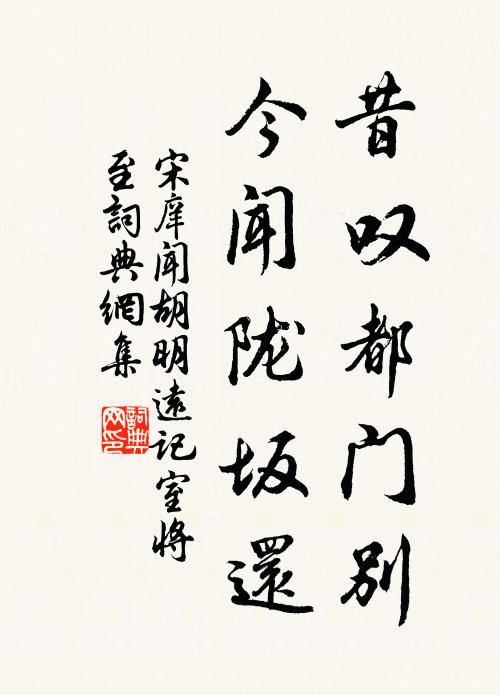 昔叹都门别
今闻陇坂還
宋庠闻胡明遠记室将
至詞典網集
詞典网印